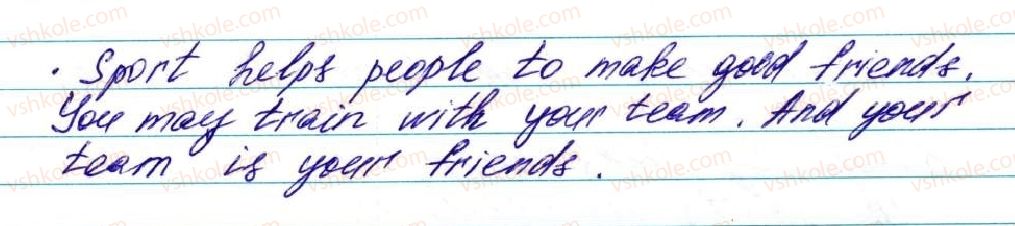 · Sport helps people to make good friends.
You may train with your team. And your
team is your friends.